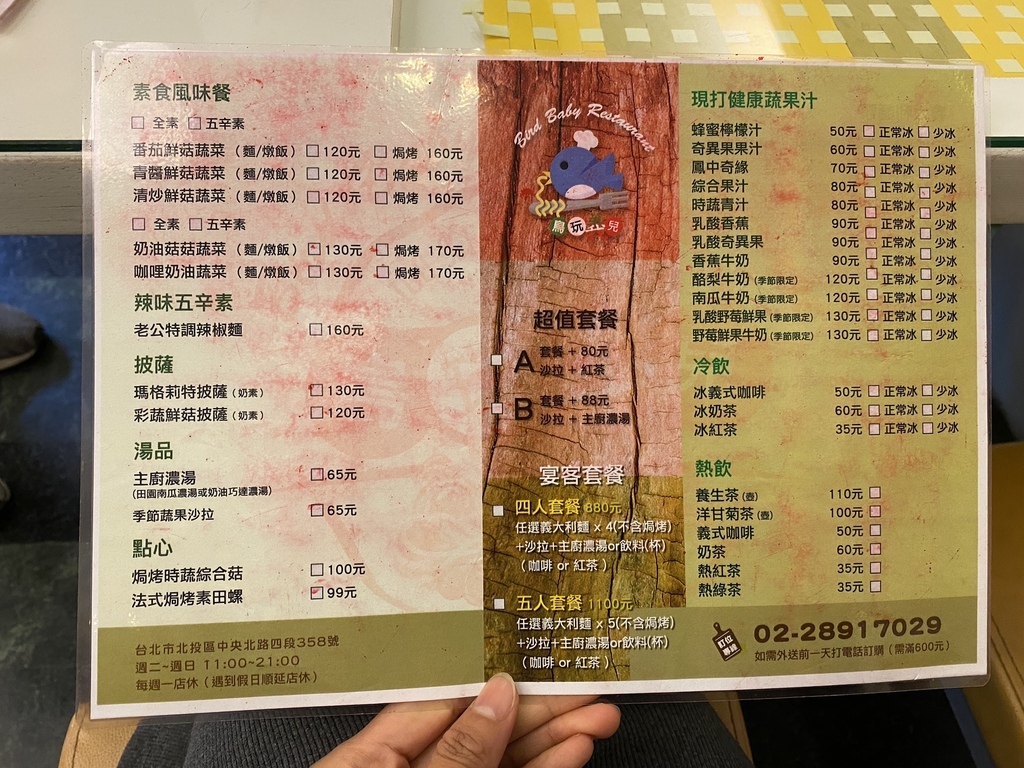 素食風味餐
□ 全素 □ 五辛素
番茄鮮菇蔬菜（麵/燉飯）□120元 □ 焗烤 160元
青醬鮮菇蔬菜（麵/燉飯）□120元 □ 焗烤 160元
清炒鮮菇蔬菜（麵/燉飯）□120元 □ 焗烤 160元
□ 全素 □ 五辛素
奶油菇菇蔬菜（麵/燉飯）□130元 □ 焗烤 170元
咖哩奶油蔬菜（麵/燉飯）□130元 □ 焗烤 170元
辣味五辛素
老公特調辣椒麵 □160元
披薩
瑪格莉特披薩（奶素） □130元
彩蔬鮮菇披薩（奶素） □120元
湯品
主廚濃湯 □65元
(田園南瓜濃湯或奶油巧達濃湯)
季節蔬果沙拉 □65元
點心
焗烤時蔬綜合菇 □100元
法式焗烤素田螺 □99元
台北市北投區中央北路四段358號
週二~週日 11:00~21:00
每週一店休（遇到假日順延店休）
Bird Baby Restaurant
鳥玩意兒
超值套餐
□ A 套餐 + 80元
沙拉 + 紅茶
□ B 套餐 + 88元
沙拉 + 主廚濃湯
宴客套餐
□ 四人套餐 880元
任選義大利麵 x 4(不含焗烤)
+沙拉+主廚濃湯or飲料(杯)
（咖啡 or 紅茶）
□ 五人套餐 1100元
任選義大利麵 x 5(不含焗烤)
+沙拉+主廚濃湯or飲料(杯)
（咖啡 or 紅茶）
現打健康蔬果汁
蜂蜜檸檬汁 50元 □ 正常冰 □ 少冰
奇異果果汁 60元 □ 正常冰 □ 少冰
鳳中奇緣 70元 □ 正常冰 □ 少冰
綜合果汁 80元 □ 正常冰 □ 少冰
時蔬青汁 80元 □ 正常冰 □ 少冰
乳酸香蕉 90元 □ 正常冰 □ 少冰
乳酸奇異果 90元 □ 正常冰 □ 少冰
香蕉牛奶 90元 □ 正常冰 □ 少冰
酪梨牛奶 (季節限定) 120元 □ 正常冰 □ 少冰
南瓜牛奶 (季節限定) 120元 □ 正常冰 □ 少冰
乳酸野莓鮮果 (季節限定) 130元 □ 正常冰 □ 少冰
野莓鮮果牛奶 (季節限定) 130元 □ 正常冰 □ 少冰
冷飲
冰義式咖啡 50元 □ 正常冰 □ 少冰
冰奶茶 60元 □ 正常冰 □ 少冰
冰紅茶 35元 □ 正常冰 □ 少冰
熱飲
養生茶 (壺) 110元 □
洋甘菊茶 (壺) 100元 □
義式咖啡 50元 □
奶茶 60元 □
熱紅茶 35元 □
熱綠茶 35元 □
訂位專線 02-28917029
如需外送前一天打電話訂購（需滿600元）